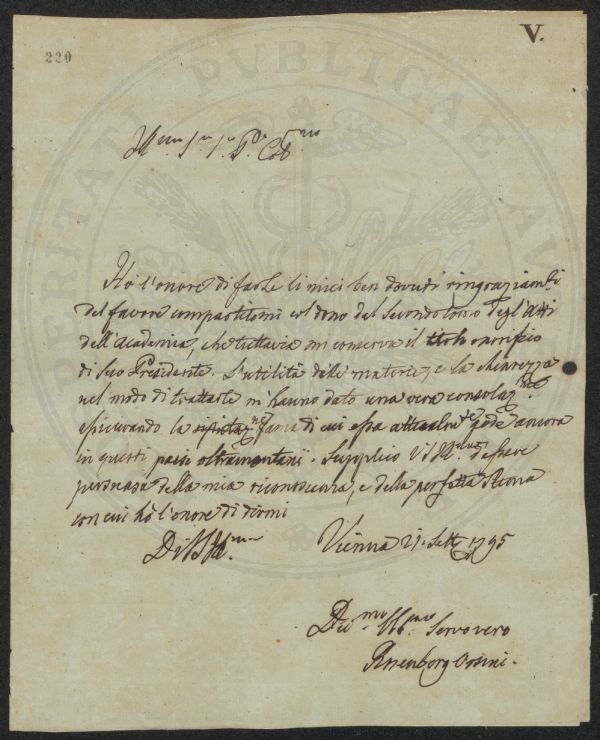 V.
220
Ill.mo Sig.r Sig.r P.ne Col.mo
Hò l'onore di farLe li miei ben dovuti ringraziam.ti
del favore compartitomi col dono del Secondo tomo degl'Atti
dell'Academia, che tuttavia mi conserva il titolo onorifico
di suo Presidente. L'utilità delle materie, e la chiarezza
nel modo di trattarle m'hanno dato una vera consolaz.ne
assicurando la fama di cui essa attualm.te gode ancora
in questi paesi oltramontani. Supplico V.S. Ill.ma d'essere
persuasa della mia riconoscenza, e della perfetta stima
con cui hò l'onore di dirmi
Di V.S. Ill.ma
Vienna 21. Sett. 1795
Dev.mo Obb.mo Servo vero
Rosenberg Orsini.
PUBLICAE